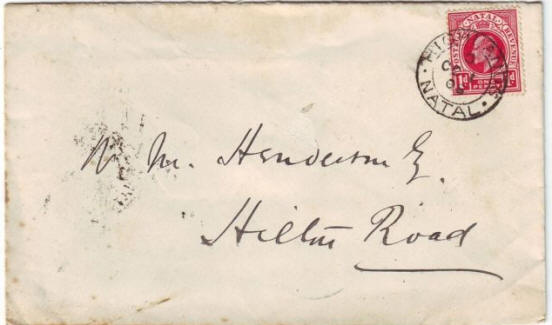 POSTAGE NATAL REVENUE
1d ONE PENNY d
NATAL
W. M. Henderson Esq.
Hilton Road